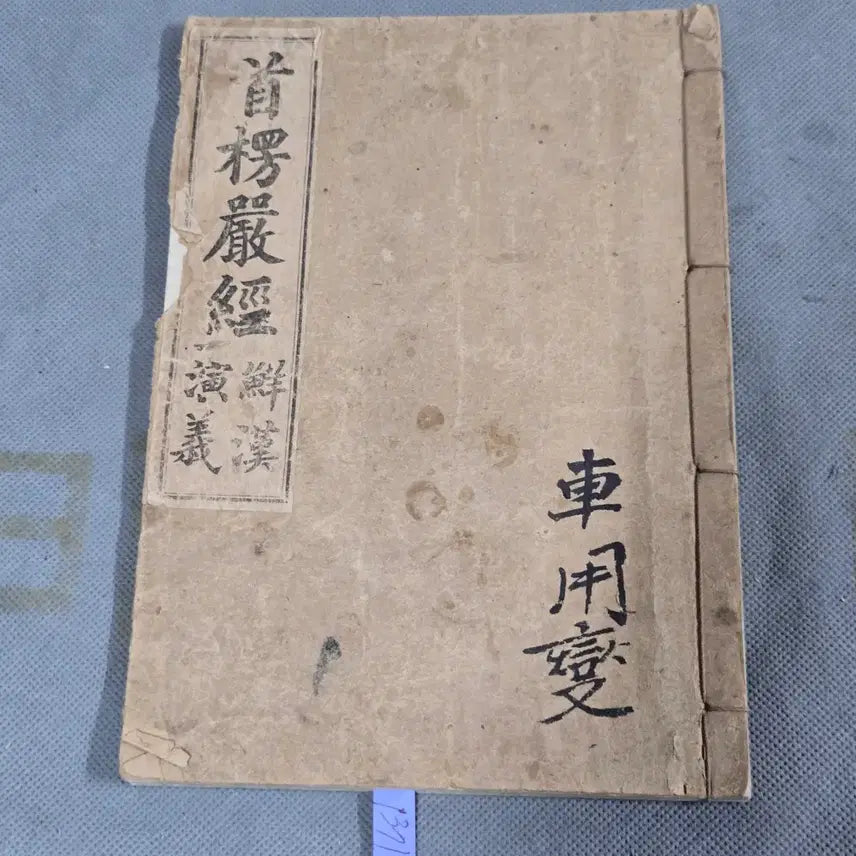 首楞嚴經
鮮漢
演義
車用變